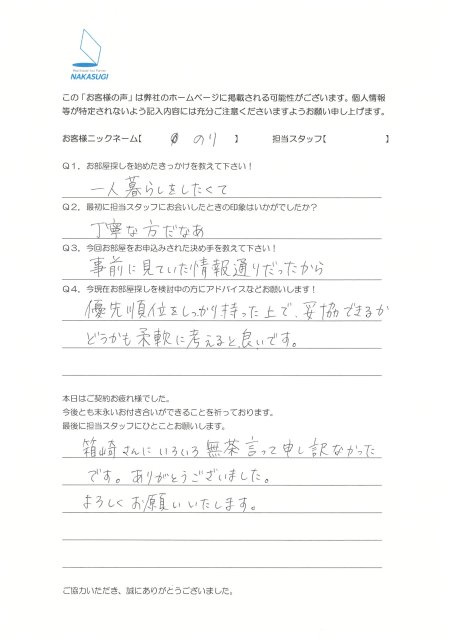 NAKASUGI
この「お客様の声」は弊社のホームページに掲載される可能性がございます。個人情報
等が特定されないよう記入内容には充分ご注意くださいますようお願い申し上げます。
お客様ニックネーム【 のり 】 担当スタッフ【 】
Q1．お部屋探しを始めたきっかけを教えて下さい！
一人暮らしをしたくて
Q2．最初に担当スタッフにお会いしたときの印象はいかがでしたか？
丁寧な方だなあ
Q3．今回お部屋をお申込みされた決め手を教えて下さい！
事前に見ていた情報通りだったから
Q4．今現在お部屋探しを検討中の方にアドバイスなどお願いします！
優先順位をしっかり持った上で、妥協できるか
どうかも柔軟に考えると良いです。
本日はご契約お疲れ様でした。
今後とも末永いお付き合いができることを祈っております。
最後に担当スタッフにひとことお願いします。
箱崎さんにいろいろ無茶言って申し訳なかった
です。ありがとうございました。
よろしくお願いいたします。
ご協力いただき、誠にありがとうございました。